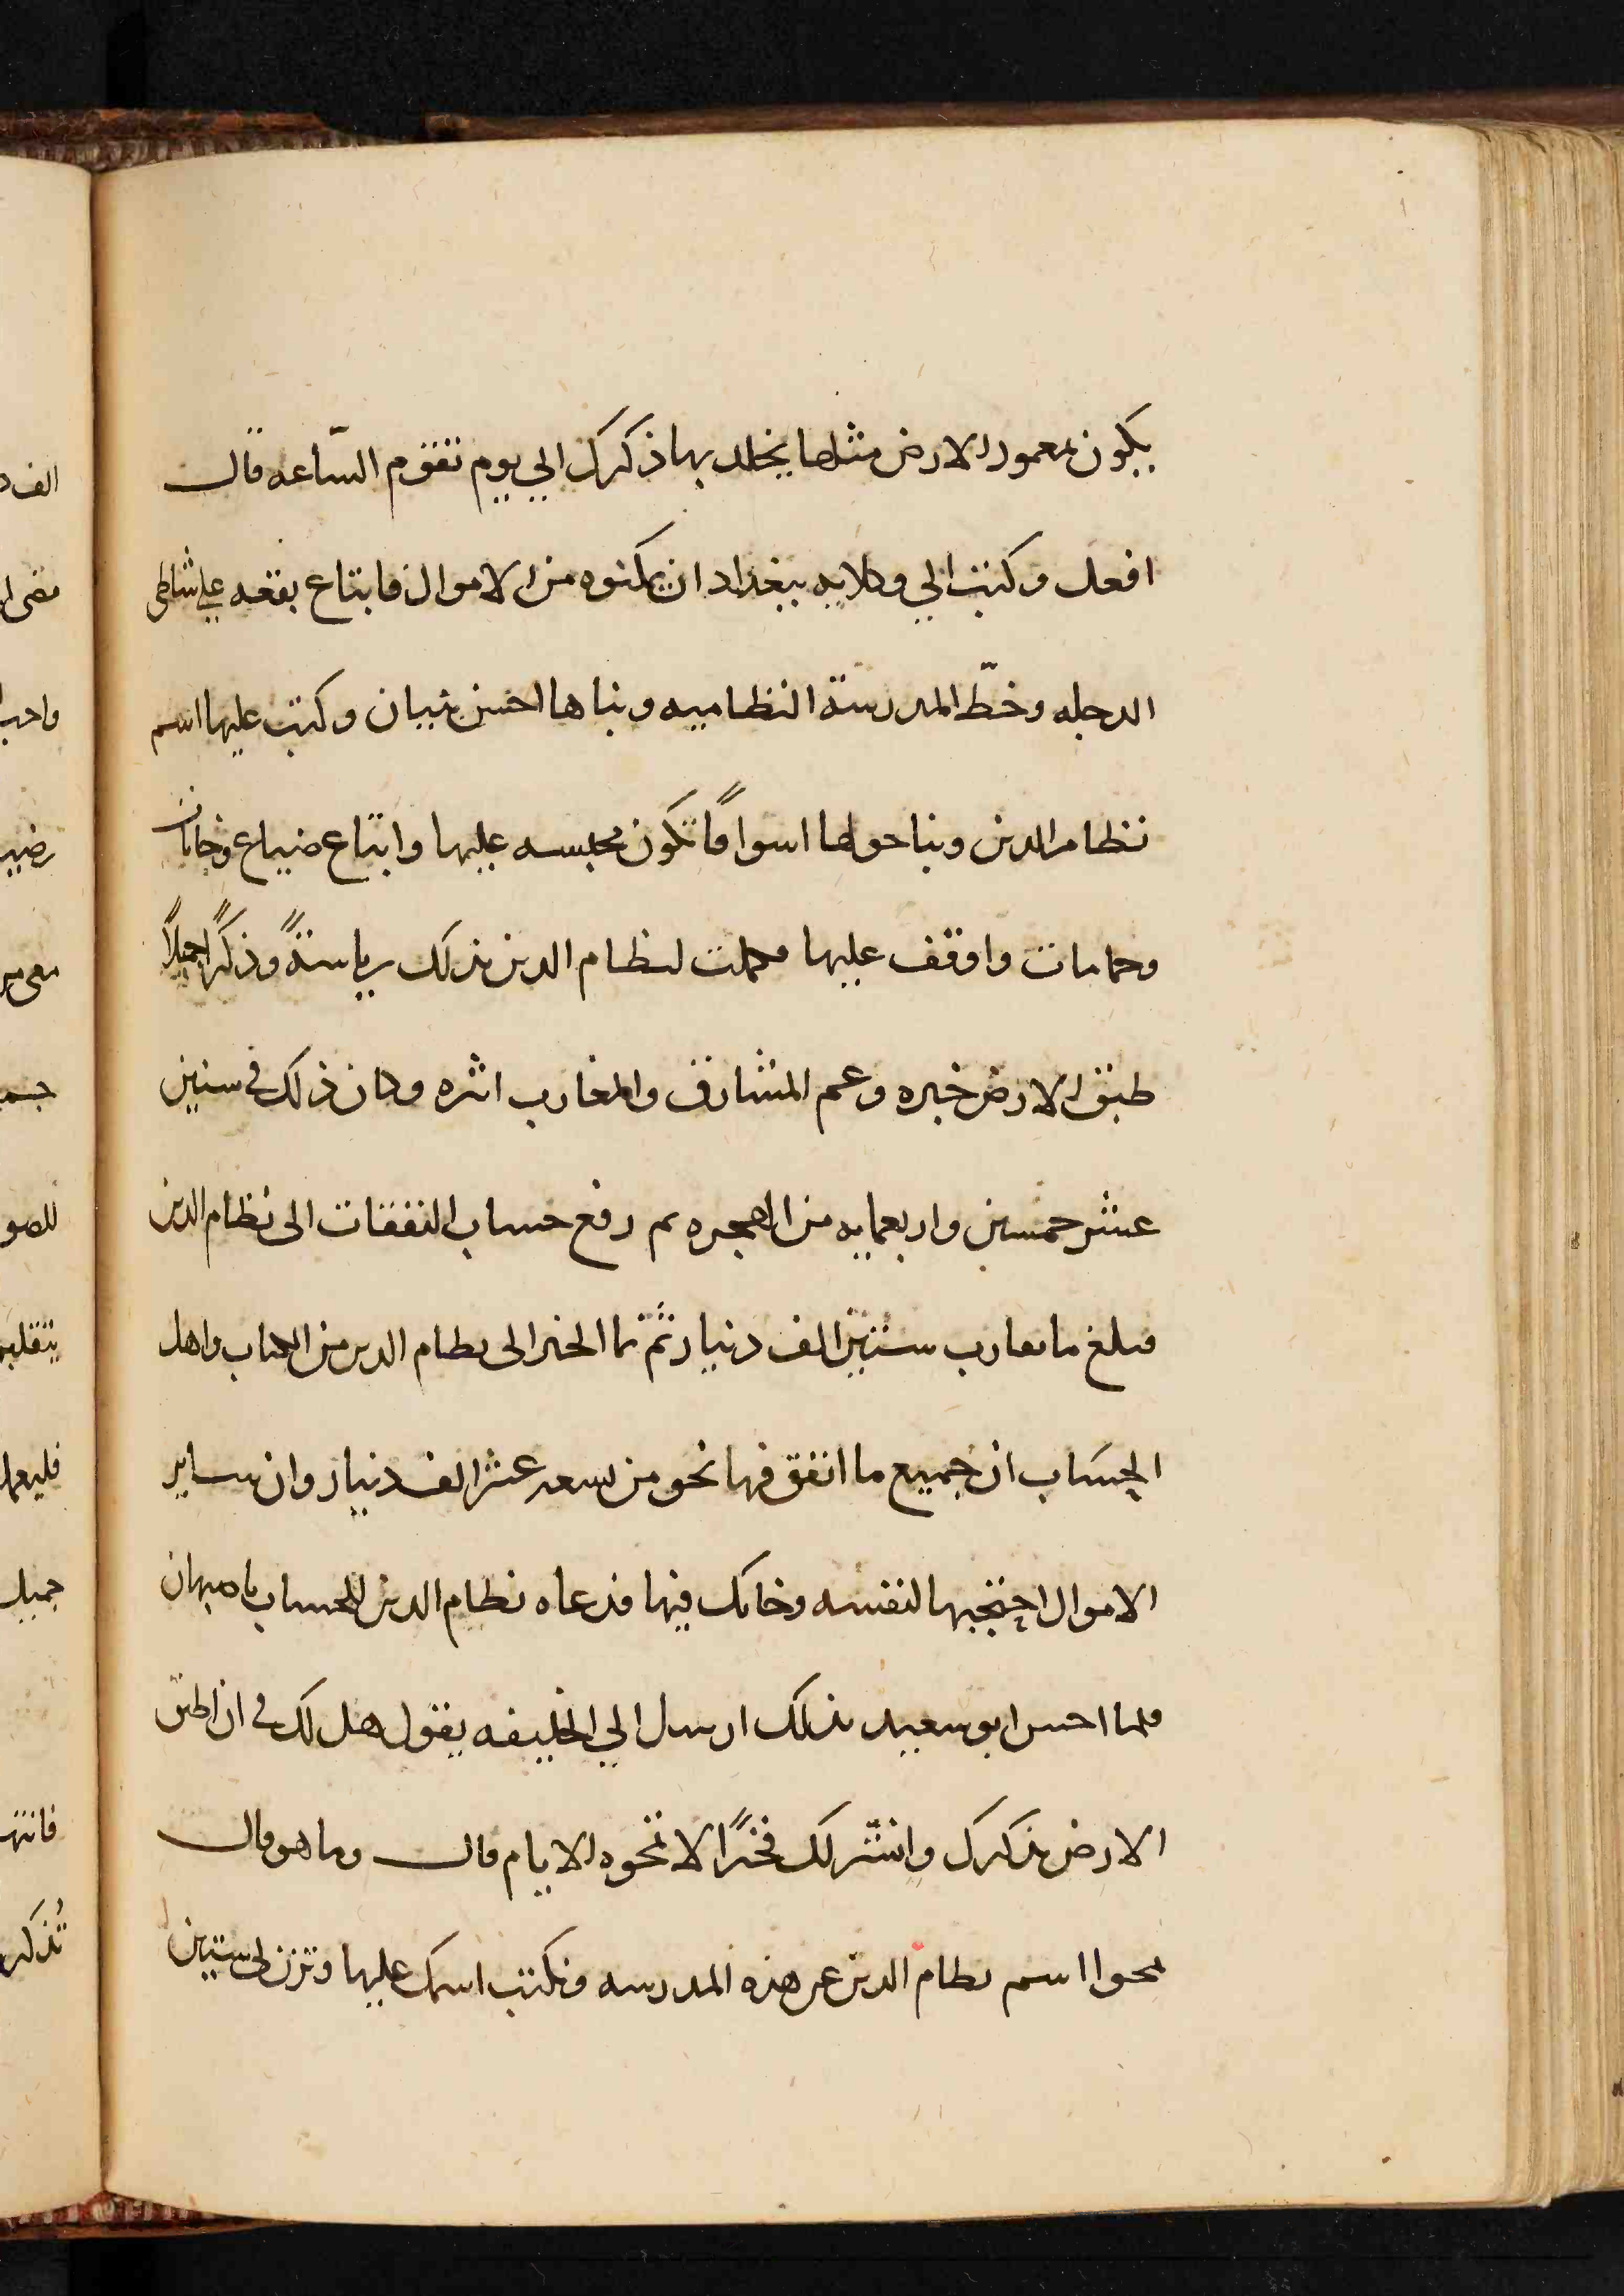 يكون بمعمور الارض مثلها يخلد بها ذكرك الي يوم تقوم السّاعه قال
افعل وكتب الي وكلايه ببغداد ان يمكنوه من الاموال فابتاع بقعه علي شاطي
الدجله وخطّ المدرسة النظاميه وبناها احسن بنيان وكتب عليها اسم
نظام الدين وبنا حولها اسواقًا تكون محبسه عليها وابتاع ضياع وخانات
وحمامات واوقف عليها فحملت لنظام الدين بذلك رياسةً وذكرًا جميلًا
طبق الارض خبره وعم المشارق والمغارب اثره وكان ذلك في سنين
عشر خمسين واربعمايه من الهجره ثم رفع حساب النفقات الى نظام الدين
فبلغ ما يقارب ستين الف دينار ثم نما الخبر الى نظام الدين من الكتاب واهل
الحِسَاب ان جميع ما انفق فيها نحو من تسعه عشر الف دينار وان ساير
الاموال احتجبها لنفسه وخانك فيها فدعاه نظام الدين للحساب باصبهان
فلما احس ابو سعيد بذلك ارسل الي الخليفه يقول هل لك في ان اطبق
الارض بذكرك وانشر لك فخرًا لا تمحوه الايام قال وما هو قال
تمحوا اسم نظام الدين عن هذه المدرسه وتكتب اسمك عليها وتزن لي ستين
الف د
واحب
للصو
جميل
تُذكر